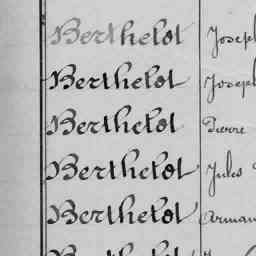 Berthelot Joseph
Berthelot Joseph
Berthelot Pierre
Berthelot Jules
Berthelot Arman
Berthelot